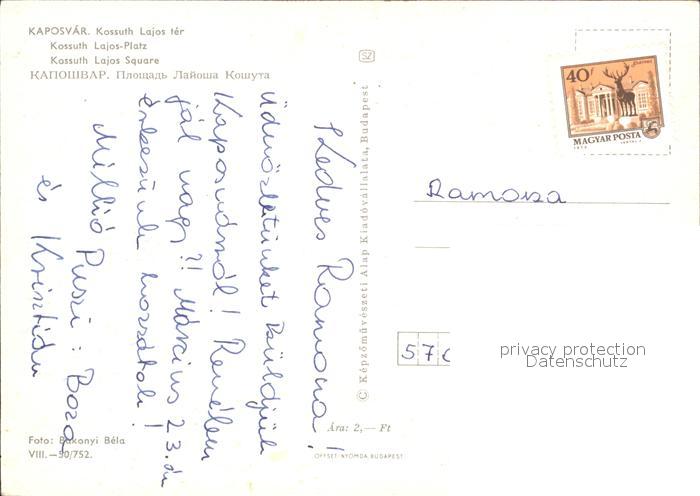 KAPOSVÁR. Kossuth Lajos tér
Kossuth Lajos-Platz
Kossuth Lajos Square
КАПОШВАР. Площадь Лайоша Кошута
Kedves Ramona!
Üdvözletünket küldjük
Kaposvárról! Remélem
jól vagy?! Március 23.án
érkezünk hozzátok!
Millió Puszi: Bora
és Krisztián
Foto: Bakonyi Béla
VIII.—50/752.
SZ
© Képzőművészeti Alap Kiadóvállalata, Budapest
Ára: 2,— Ft
OFFSET-NYOMDA BUDAPEST
40f
MAGYAR POSTA
Ramona
57
privacy protection
Datenschutz